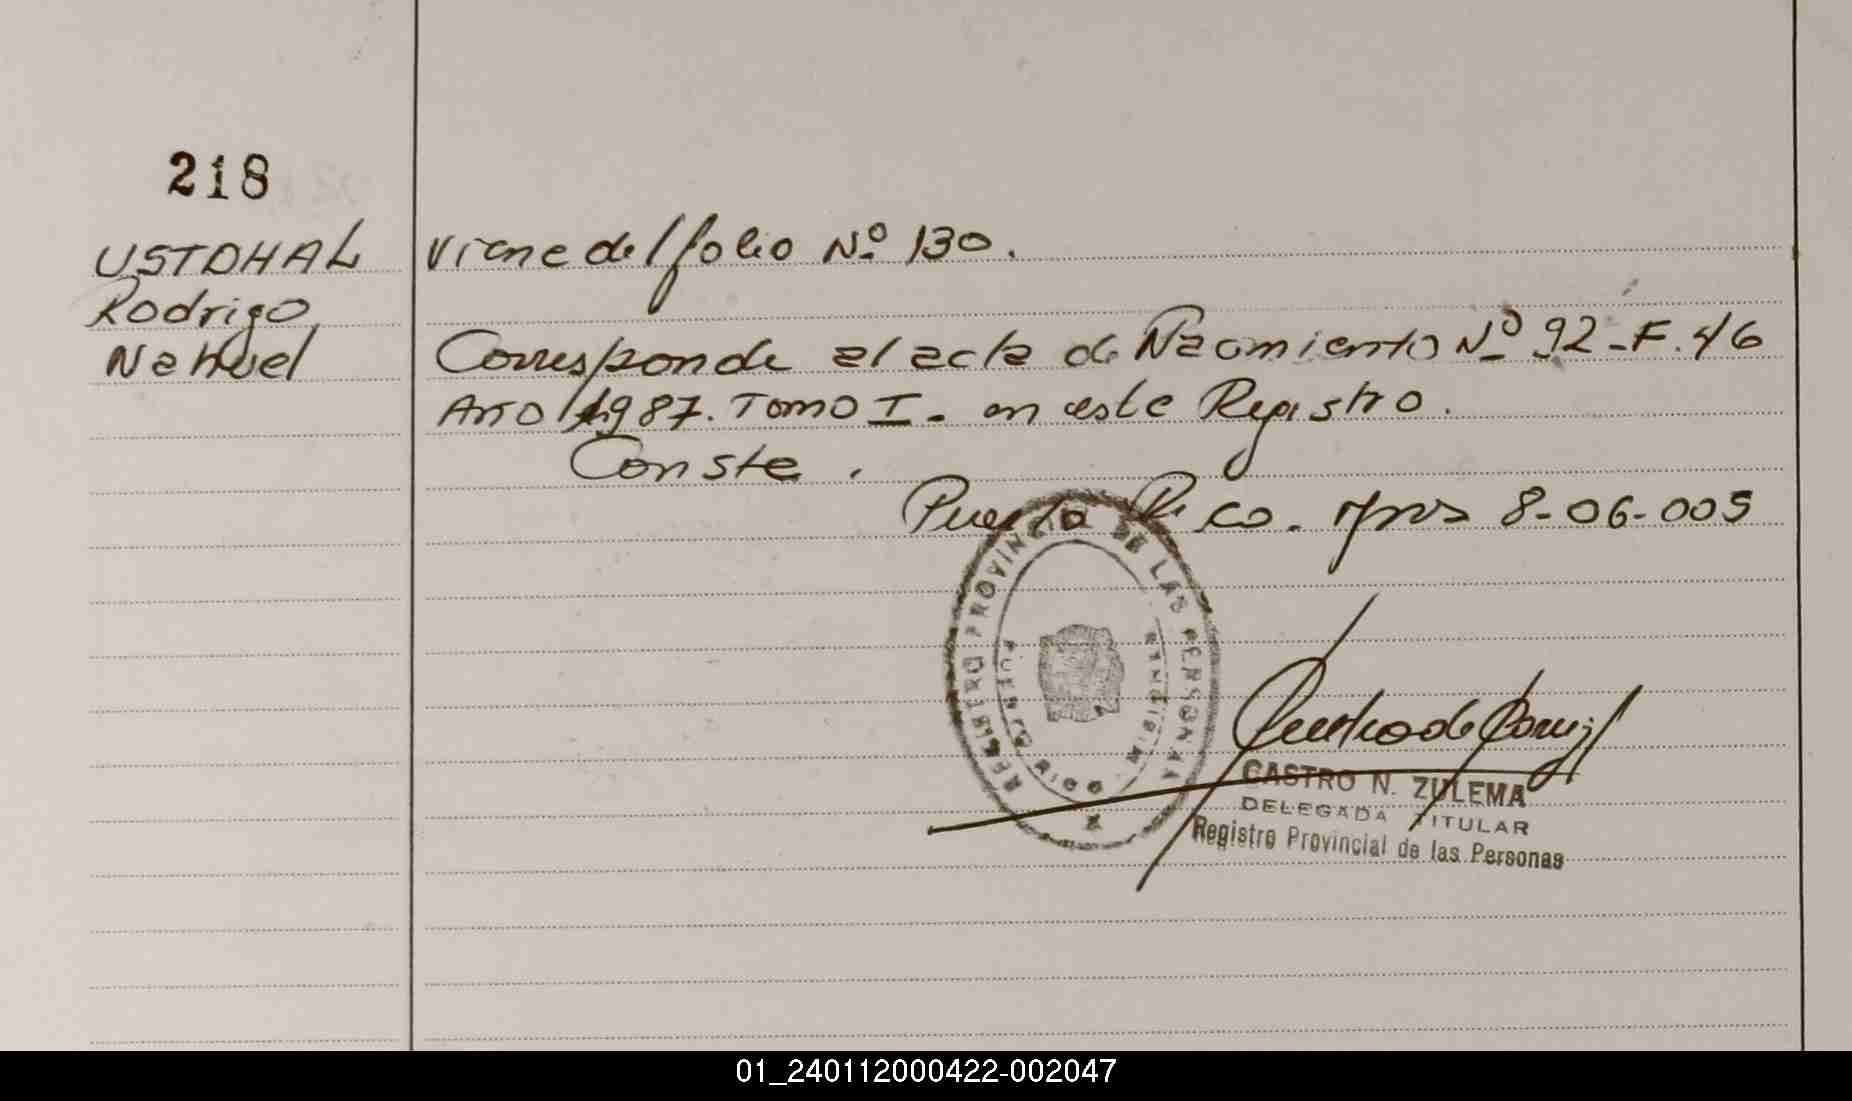 218
USTOHAL
Rodrigo
Nahuel
Viene del folio Nº 130.
Corresponde al acta de Nacimiento Nº 92-F. 46
Año 1987. Tomo I. en este Registro.
Conste.
Puerto Rico. Mnes 8-06-005
REGISTRO PROVINCIAL DE LAS PERSONAS
PUERTO RICO MISIONES
CASTRO N. ZULEMA
DELEGADA TITULAR
Registro Provincial de las Personas
01_240112000422-002047